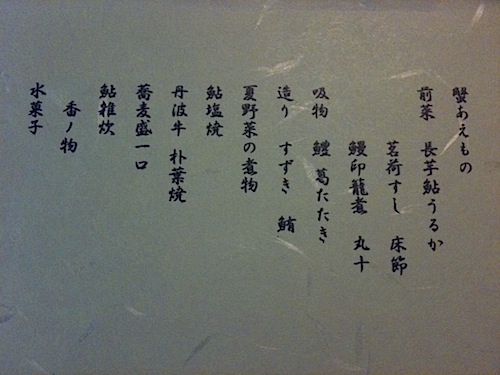 蟹あえもの
前菜 長芋鮎うるか
茗荷すし 床節
鰻印籠煮 丸十
吸物 鱧葛たたき
造り すずき 鮪
夏野菜の煮物
鮎塩焼
丹波牛 朴葉焼
蕎麦盛一口
鮎雑炊
香ノ物
水菓子